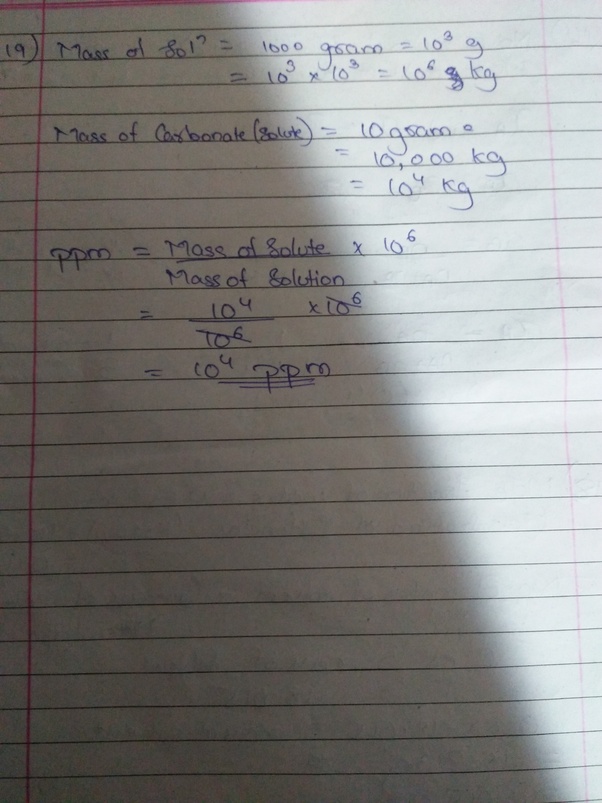 19) Mass of Sol? = 1000 gram = 10³ g
= 10³ × 10³ = 10⁶ kg
Mass of Carbonate (Solute) = 10 gram
= 10,000 kg
= 10⁴ kg
ppm = Mass of Solute × 10⁶
Mass of Solution
= 10⁴ × 10⁶
10⁶
= 10⁴ ppm